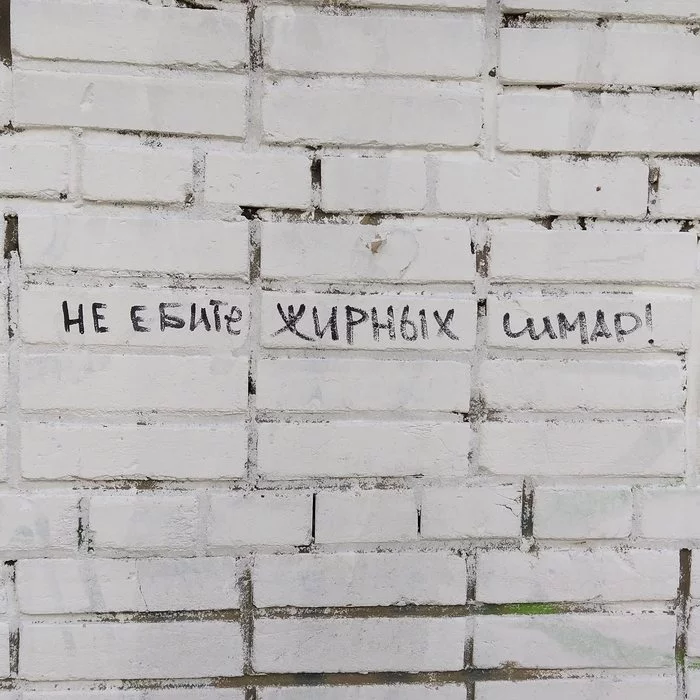 НЕ ЕБИТе ЖИРНЫХ ШМАР!